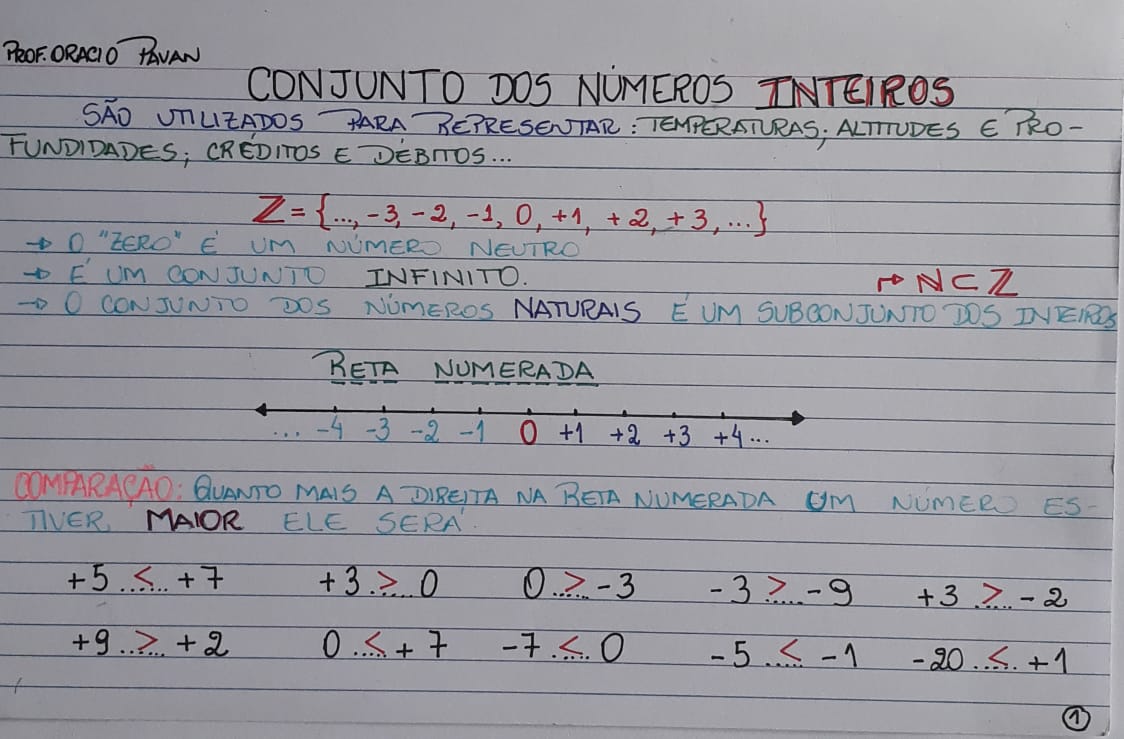 PROF. ORACIO PAVAN
CONJUNTO DOS NÚMEROS INTEIROS
SÃO UTILIZADOS PARA REPRESENTAR: TEMPERATURAS; ALTITUDES E PRO-
FUNDIDADES; CRÉDITOS E DÉBITOS...
Z = {..., -3, -2, -1, 0, +1, +2, +3, ...}
→ O "ZERO" É UM NÚMERO NEUTRO
→ É UM CONJUNTO INFINITO.
→ N ⊂ Z
→ O CONJUNTO DOS NÚMEROS NATURAIS É UM SUBCONJUNTO DOS INTEIROS
RETA NUMERADA
... -4 -3 -2 -1 0 +1 +2 +3 +4...
COMPARAÇÃO: QUANTO MAIS A DIREITA NA RETA NUMERADA UM NÚMERO ES-
TIVER, MAIOR ELE SERÁ.
+5 ..<.. +7 +3 ..>.. 0 0 ..>.. -3 -3 ..>.. -9 +3 ..>.. -2
+9 ..>.. +2 0 ..<.. +7 -7 ..<.. 0 -5 ..<.. -1 -20 ..<.. +1
1